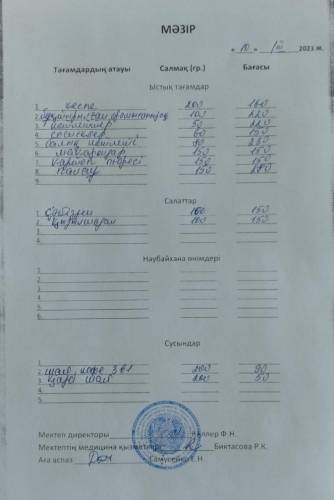 МӘЗІР
« 10 » 10 2023 ж.
Тағамдардың атауы Салмақ (гр.) Бағасы
Ыстық тағамдар
1 кеспе 200 160
2 100 220
3 котлеттер 50 220
4 сосискалар 60 150
5 балық котлеті 80 250
6 макарондар 150 150
7 картоп пюресі 150 150
8 палау 150
Салаттар
1 Сәбізден 100 150
2 Қызылшадан 100 150
3
4
5
Наубайхана өнімдері
1
2
3
4
5
6
Сусындар
1
2 шай, кофе 3в1 200 90
3 қара шай 200 50
4
5
Мектеп директоры Ф Н.
Мектептің медицина қызметкері Биктасова Р.К.
Аға аспаз Самусенко Е.Н.